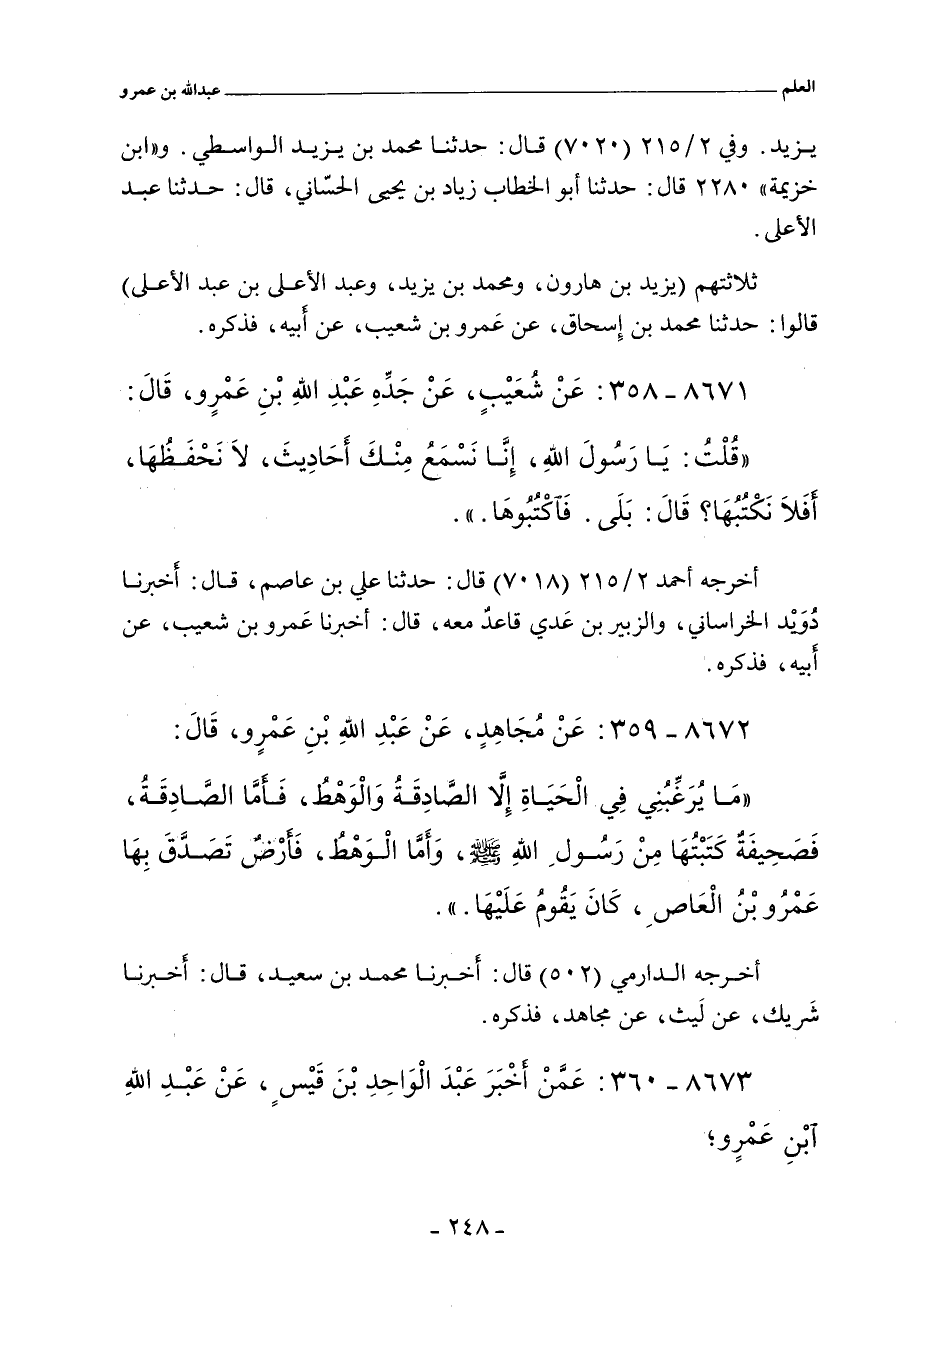 العلم ــــــــــــــــــــ عبدالله بن عمرو
يـزيد. وفي ٢/ ٢١٥ (٧٠٢٠) قـال: حدثنـا محمد بن يـزيـد الـواسـطي. و«ابن
خزيمة» ٢٢٨٠ قال: حدثنا أبو الخطاب زياد بن يحيى الحسّاني، قال: حـدثنا عبـد
الأعلى.
ثلاثتهم (يزيد بن هارون، ومحمد بن يزيد، وعبد الأعـلى بن عبد الأعـلى)
قالوا: حدثنا محمد بن إسحاق، عن عَمرو بن شعيب، عن أبيه، فذكره.
٨٦٧١ - ٣٥٨: عَنْ شُعَيْبٍ، عَنْ جَدِّهِ عَبْدِ اللهِ بْنِ عَمْرٍو، قَالَ:
«قُلْتُ: يَـا رَسُولَ اللهِ، إِنَّـا نَسْمَعُ مِنْـكَ أَحَادِيثَ، لاَ نَحْفَـظُهَا،
أَفَلاَ نَكْتُبُهَا؟ قَالَ: بَلَى. فَآكْتُبُوهَا.».
أخرجه أحمد ٢/ ٢١٥ (٧٠١٨) قال: حدثنا علي بن عاصم، قـال: أخبرنـا
دُوَيْد الخراساني، والزبير بن عَدي قاعدٌ معه، قال: أخبرنا عَمرو بن شعيب، عن
أبيه، فذكره.
٨٦٧٢ - ٣٥٩: عَنْ مُجَاهِدٍ، عَنْ عَبْدِ اللهِ بْنِ عَمْرٍو، قَالَ:
«مَـا يُرَغِّبُنِي فِي الْحَيَـاةِ إِلَّا الصَّادِقَـةُ وَالْوَهْطُ، فَـأَمَّا الصَّـادِقَـةُ،
فَصَحِيفَةٌ كَتَبْتُهَا مِنْ رَسُـولِ اللهِ ﷺ، وَأَمَّا الْـوَهْطُ، فَأَرْضٌ تَصَـدَّقَ بِهَا
عَمْرُو بْنُ الْعَاصِ، كَانَ يَقُومُ عَلَيْهَا.».
أخـرجه الـدارمي (٥٠٢) قال: أَخـبرنـا محمـد بن سعيد، قـال: أَخـبرنـا
شَريك، عن لَيث، عن مجاهد، فذكره.
٨٦٧٣ - ٣٦٠: عَمَّنْ أَخْبَرَ عَبْدَ الْوَاحِدِ بْنَ قَيْسٍ، عَنْ عَبْـدِ اللهِ
آبْنِ عَمْرٍو؛
- ٢٤٨ -